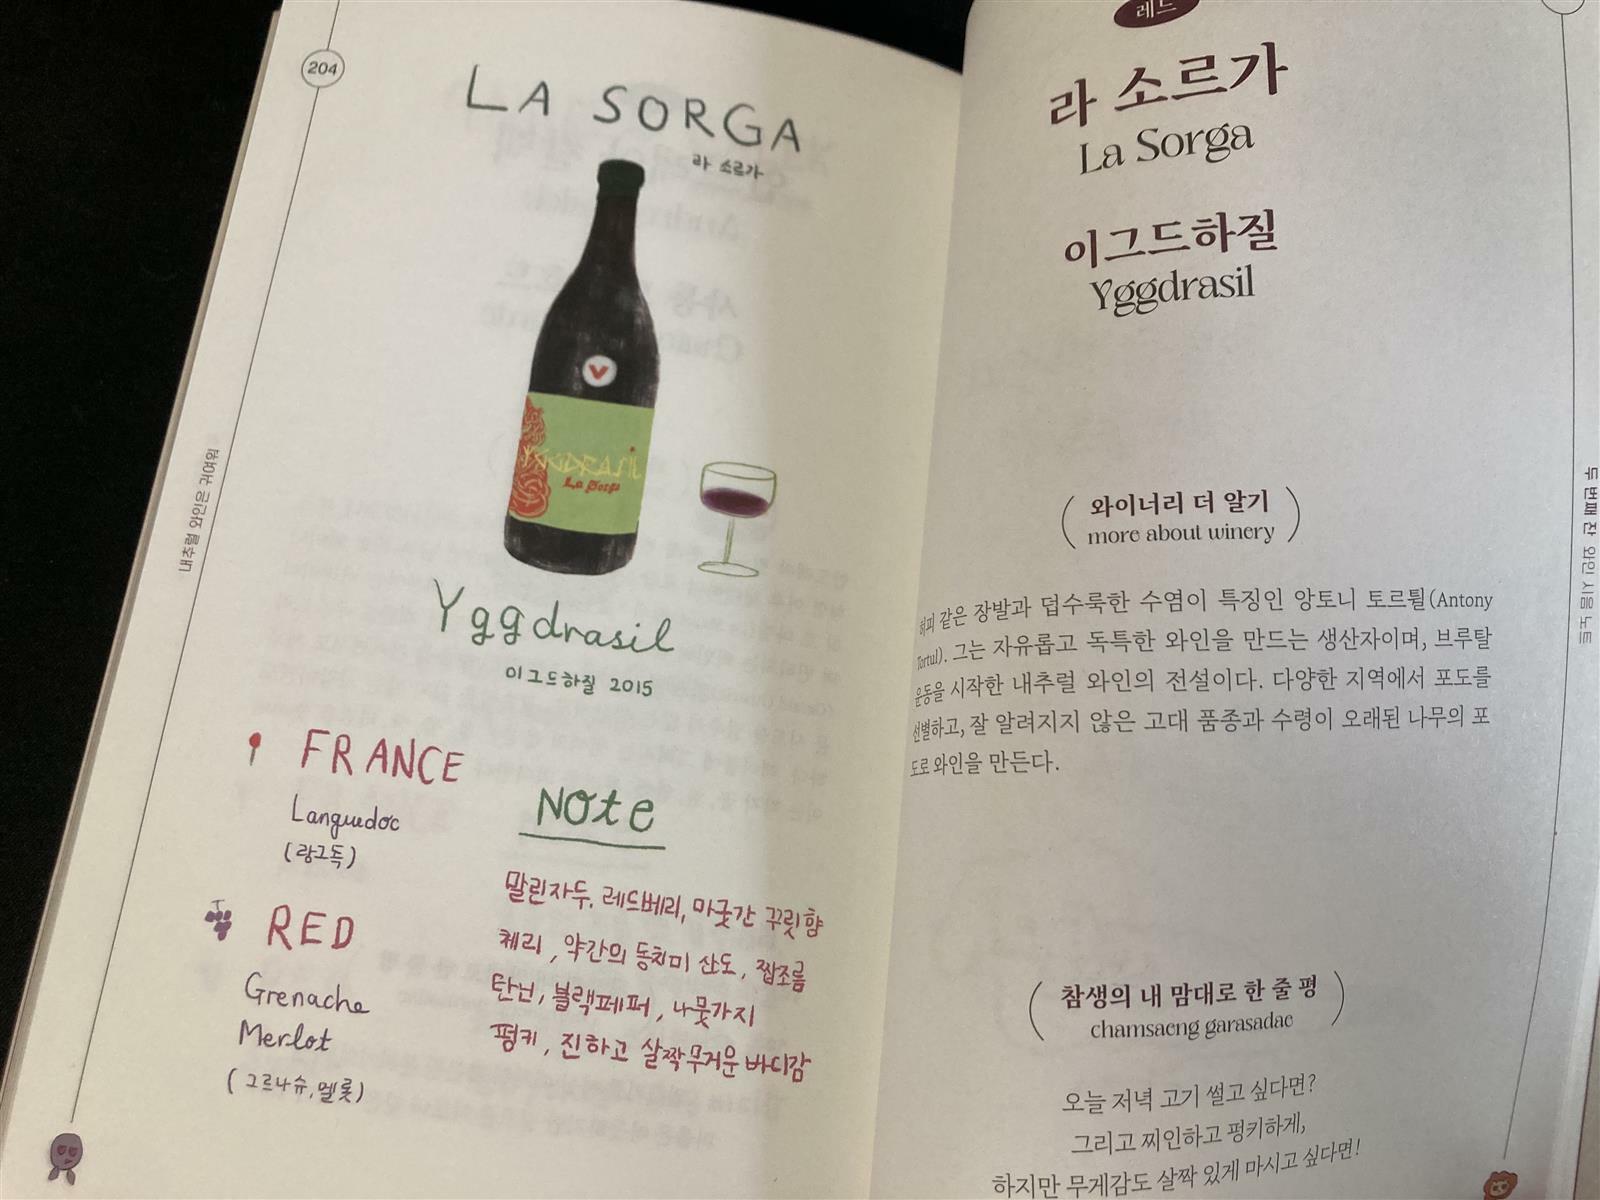 204
LA SORGA
라 소르가
V
YGGDRASIL
La Sorga
Yggdrasil
이그드하질 2015
FRANCE
Languedoc
(랑그독)
RED
Grenache
Merlot
(그르나슈, 멜롯)
NOtE
말린자두, 레드베리, 마굿간 꾸릿향
체리, 약간의 동치미 산도, 짭조름
탄닌, 블랙페퍼, 나뭇가지
펑키, 진하고 살짝 무거운 바디감
내추럴 와인은 귀여워
레드
라 소르가
La Sorga
이그드하질
Yggdrasil
와이너리 더 알기
more about winery
히피 같은 장발과 덥수룩한 수염이 특징인 앙토니 토르튈(Antony
Tortul). 그는 자유롭고 독특한 와인을 만드는 생산자이며, 브루탈
운동을 시작한 내추럴 와인의 전설이다. 다양한 지역에서 포도를
선별하고, 잘 알려지지 않은 고대 품종과 수령이 오래된 나무의 포
도로 와인을 만든다.
참생의 내 맘대로 한 줄 평
chamsaeng garasadae
오늘 저녁 고기 썰고 싶다면?
그리고 찌인하고 펑키하게,
하지만 무게감도 살짝 있게 마시고 싶다면!
두 번째 잔 와인 시음 노트